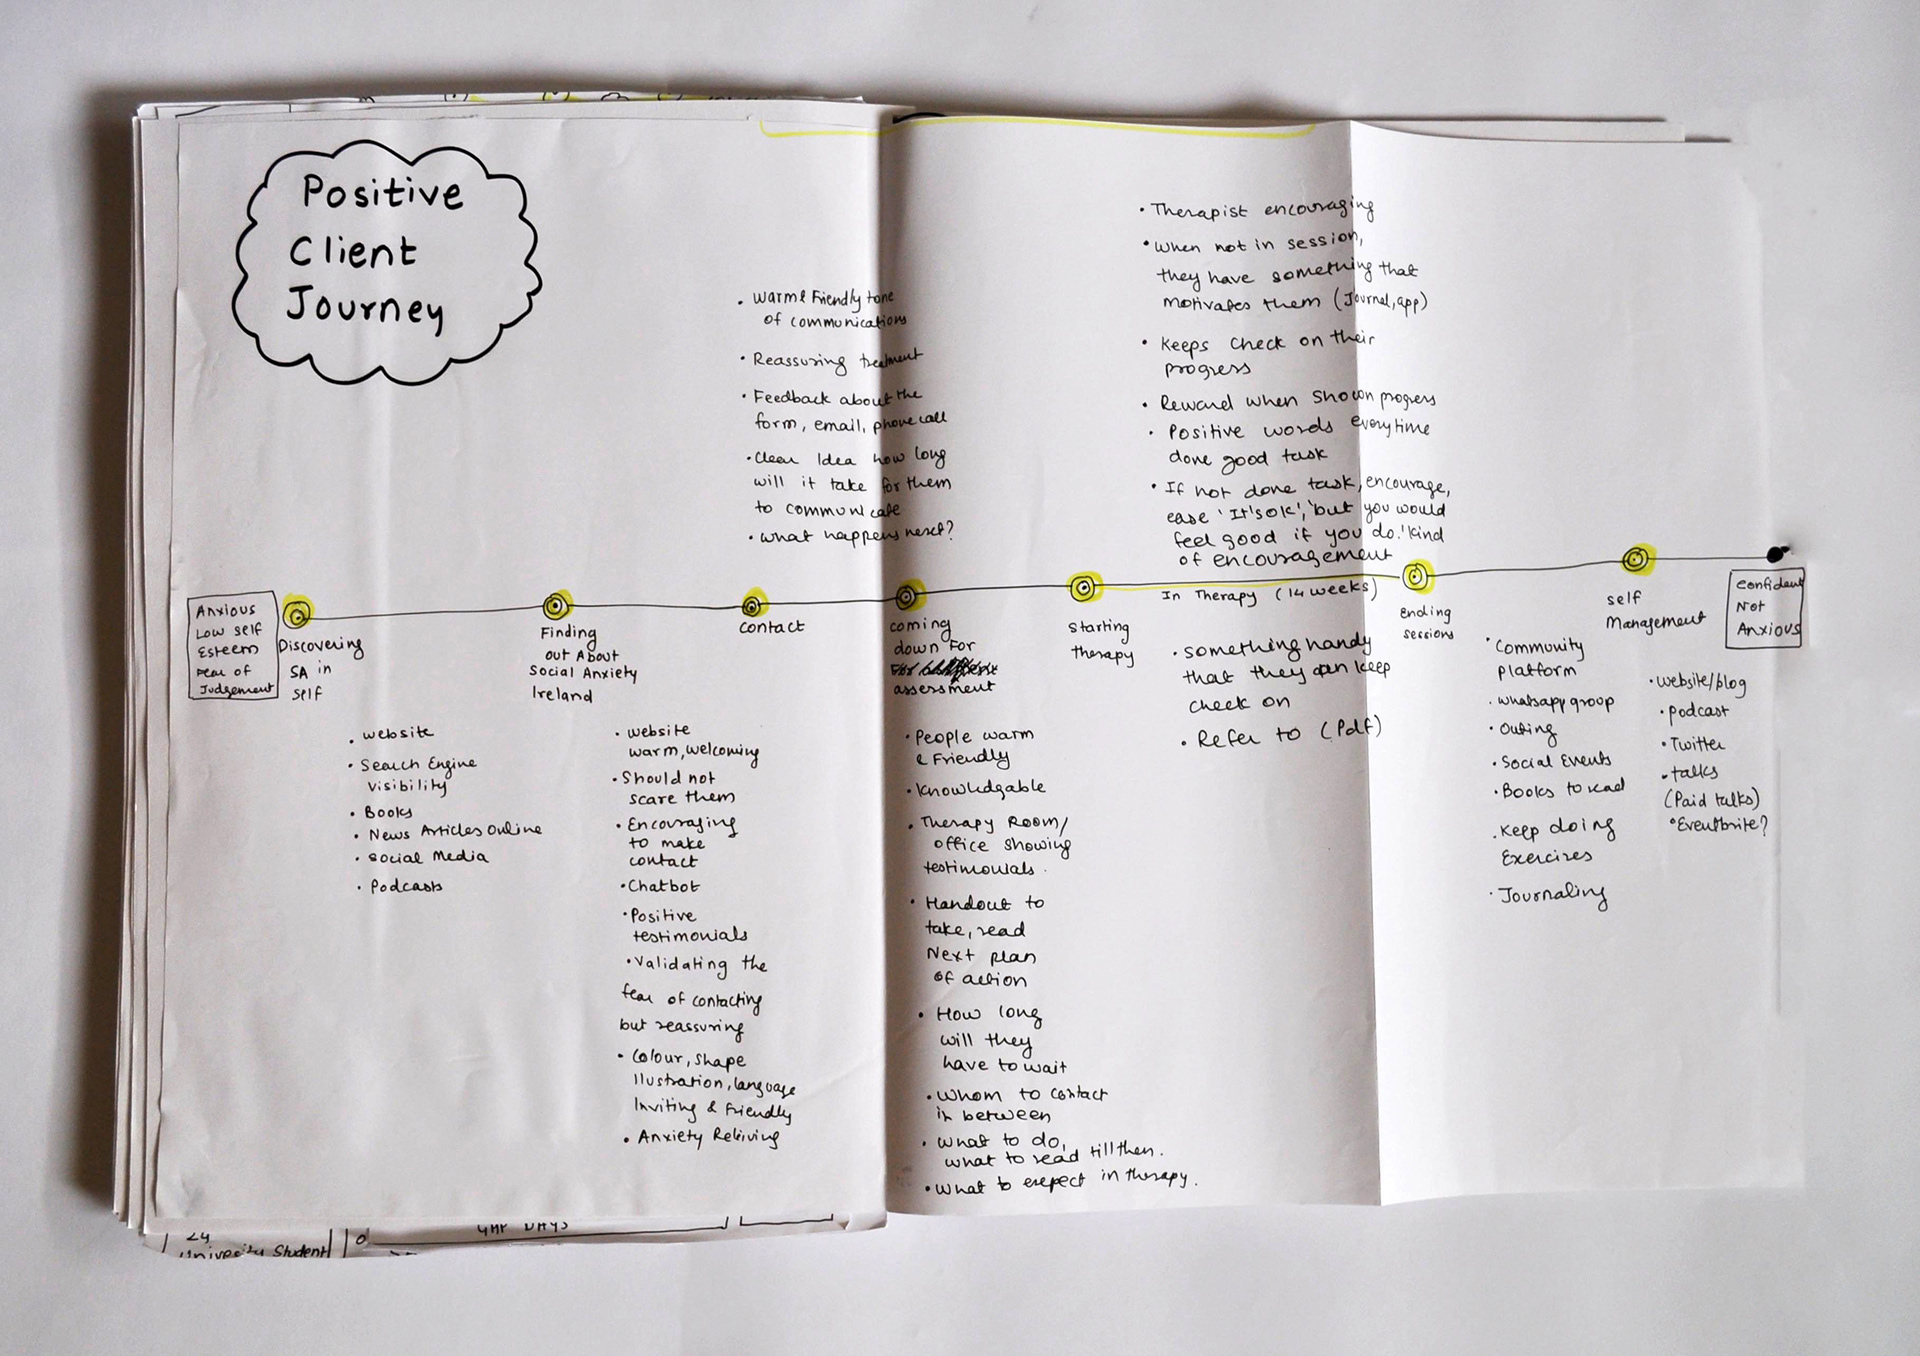 Positive
Client
Journey
Anxious
Low self
Esteem
Fear of
Judgement
Discovering
SA in
self
• website
• Search Engine
visibility
• Books
• News Articles Online
• Social Media
• Podcasts
Finding
out About
Social Anxiety
Ireland
• website
warm, welcoming
• Should not
scare them
• Encouraging
to make
contact
• Chatbot
• Positive
testimonials
• Validating the
fear of contacting
but reassuring
• Colour, shape
Ilustration, language
Inviting & Friendly
• Anxiety Reliving
contact
• warm & Friendly tone
of communications
• Reassuring treatment
• Feedback about the
form, email, phone call
• Clear Idea how long
will it take for them
to communicate
• what happens next?
coming
down For
assessment
• People warm
& Friendly
• Knowledgable
• Therapy Room/
office showing
testimonials.
• Handout to
take, read
Next plan
of action
• How long
will they
have to wait
• Whom to contact
in between
• what to do,
what to read till then.
• What to expect in therapy.
Starting
therapy
• Therapist encouraging
• When not in session,
they have something that
motivates them (Journal, app)
• Keeps check on their
progress
• Reward when shown progress
• Positive words everytime
done good task
• If not done task, encourage,
ease 'It's ok', 'but you would
feel good if you do.' kind
of encouragement
In Therapy (14 weeks)
• something handy
that they can keep
check on
• Refer to (Pdf)
Ending
sessions
• Community
platform
• whatsapp group
• Outing
• Social Events
• Books to read
• Keep doing
Exercizes
• Journaling
self
Management
• website/blog
• podcast
• Twitter
• talks
(Paid talks)
• Eventbrite?
Confident
Not
Anxious
24
University Student
GAP DAYS